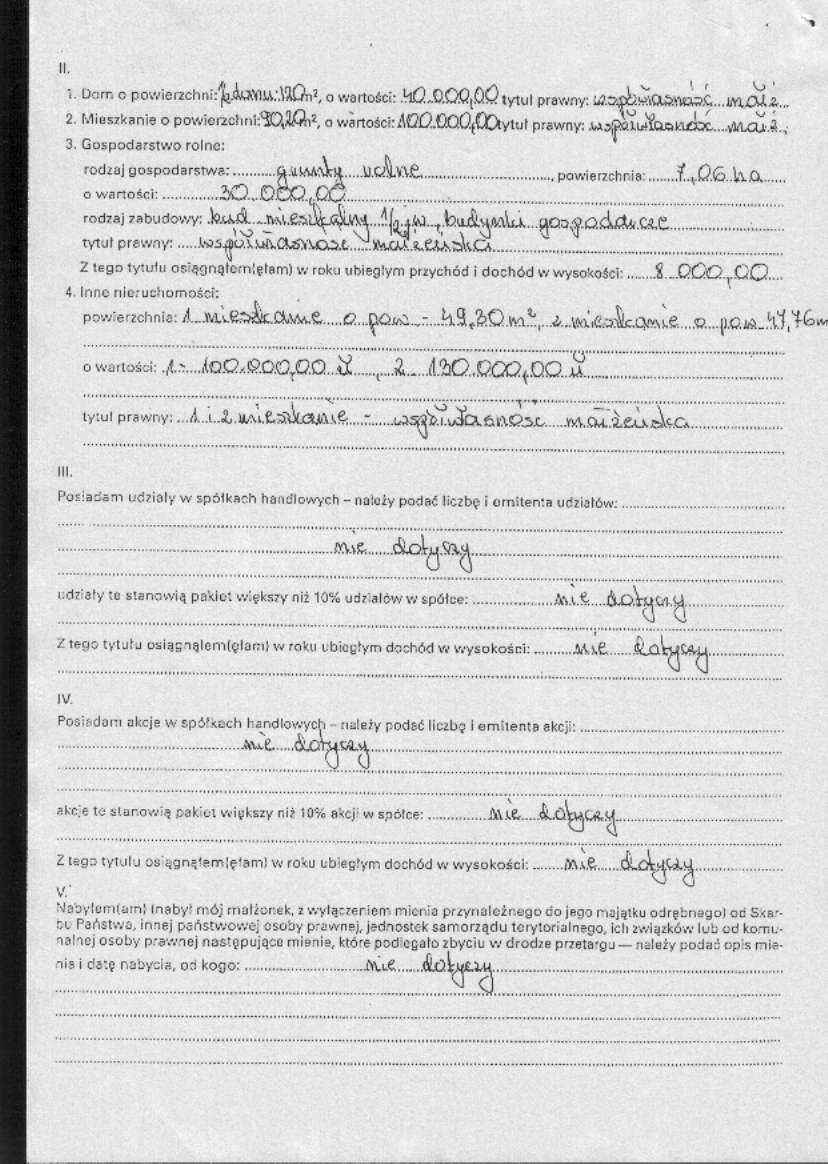 II.
1. Dom o powierzchni: 1/2 domu 120 m², o wartości: 40.000,00 tytuł prawny: współwłasność małż.
2. Mieszkanie o powierzchni: m², o wartości: 100.000,00 tytuł prawny: współwłasność małż.
3. Gospodarstwo rolne:
rodzaj gospodarstwa: grunty rolne, powierzchnia: 7,06 ha
o wartości: 30.000,00
rodzaj zabudowy: bud mieszkalny 1/2 jw, budynki gospodarcze
tytuł prawny: współwłasność małżeńska
Z tego tytułu osiągnąłem(ęłam) w roku ubiegłym przychód i dochód w wysokości: 8 000,00
4. Inne nieruchomości:
powierzchnia: 1 mieszkanie o pow - 49,30 m², 2 mieszkanie o pow 47,76 m
o wartości: 1- 100.000,00 zł, 2 130.000,00 zł
tytuł prawny: 1 i 2 mieszkanie - współwłasność małżeńska
III.
Posiadam udziały w spółkach handlowych – należy podać liczbę i emitenta udziałów:
nie dotyczy
udziały te stanowią pakiet większy niż 10% udziałów w spółce: nie dotyczy
Z tego tytułu osiągnąłem(ęłam) w roku ubiegłym dochód w wysokości: nie dotyczy
IV.
Posiadam akcje w spółkach handlowych – należy podać liczbę i emitenta akcji:
nie dotyczy
akcje te stanowią pakiet większy niż 10% akcji w spółce: nie dotyczy
Z tego tytułu osiągnąłem(ęłam) w roku ubiegłym dochód w wysokości: nie dotyczy
V.
Nabyłem(am) (nabył mój małżonek, z wyłączeniem mienia przynależnego do jego majątku odrębnego) od Skar-
bu Państwa, innej państwowej osoby prawnej, jednostek samorządu terytorialnego, ich związków lub od komu-
nalnej osoby prawnej następujące mienie, które podlegało zbyciu w drodze przetargu — należy podać opis mie-
nia i datę nabycia, od kogo: nie dotyczy